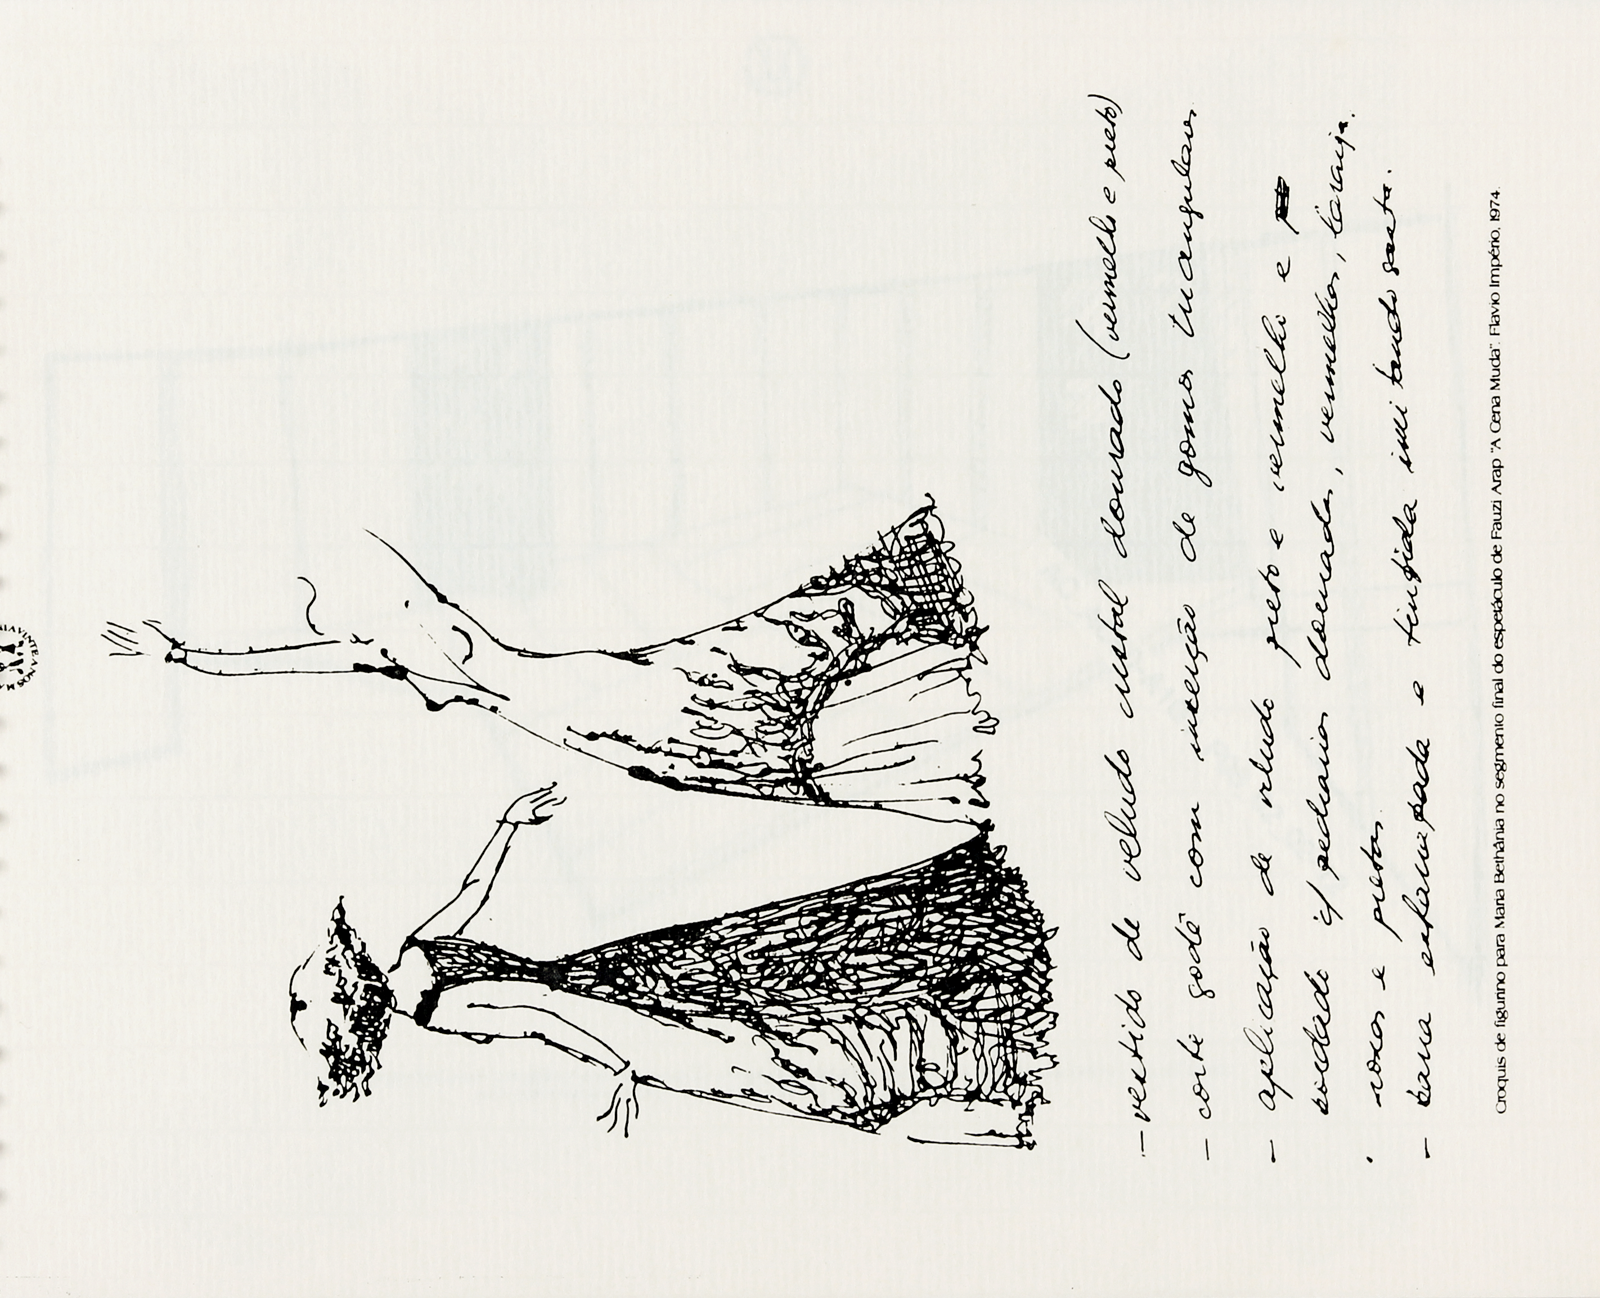 — vestido de veludo cristal dourado (vermelho e preto)
— corte godê com inserção de gomos triangulares
— aplicação de veludo preto e vermelho e
bordado c/ pedrarias douradas, vermelhas, laranja.
roxas e pretas
— barra estampada e tingida imitando gasta.
Croquis de figurino para Maria Bethânia no segmento final do espetáculo de Fauzi Arap "A Cena Muda". Flavio Império, 1974.